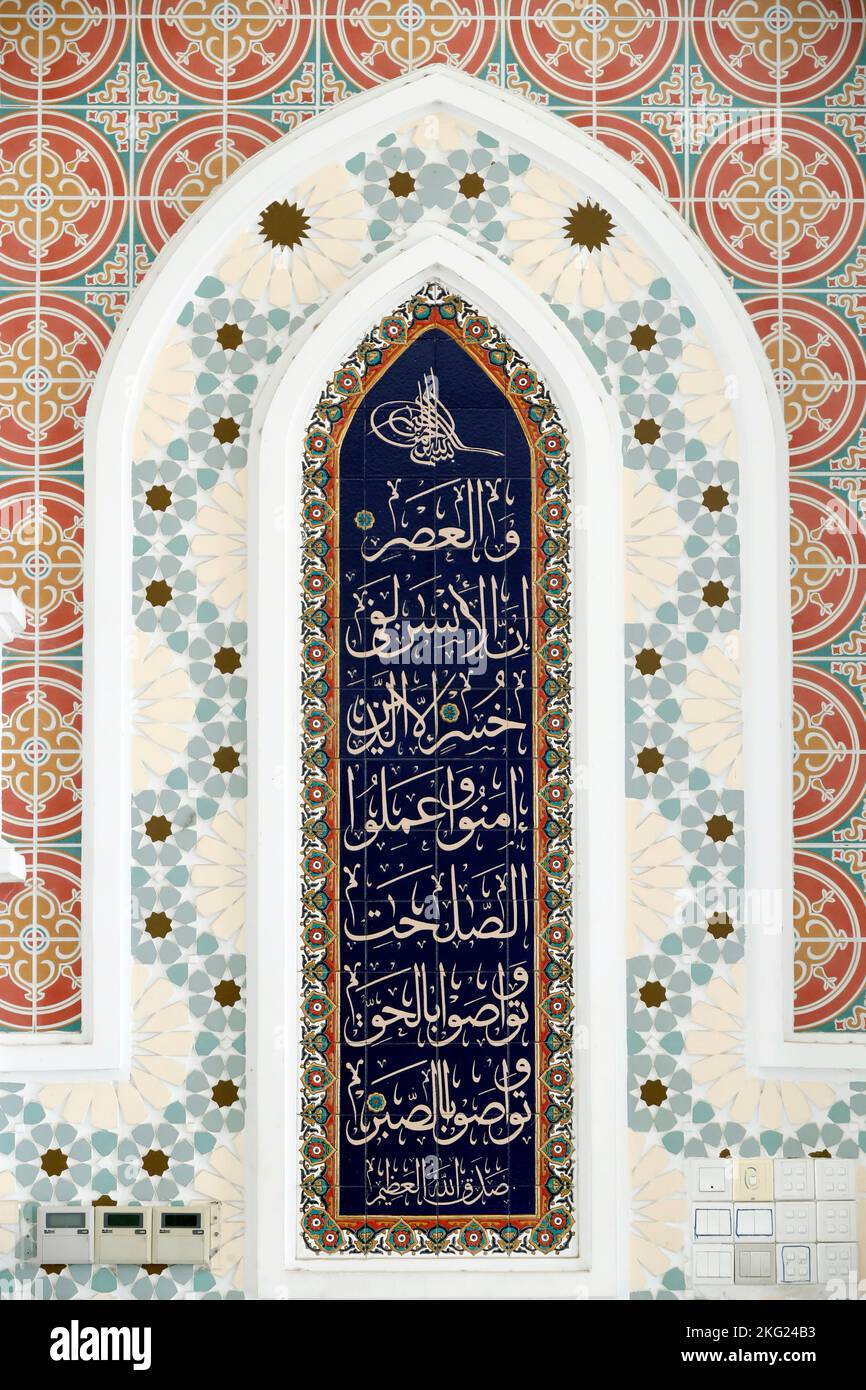 بسم الله الرحمن الرحيم
والعصر
إن الأنسن لفى
خسر إلا الذين
ءامنوا وعملوا
الصلحت
وتواصوا بالحق
وتواصوا بالصبر
صدق الله العظيم
alamy
alamy
Image ID: 2KG24B3
www.alamy.com